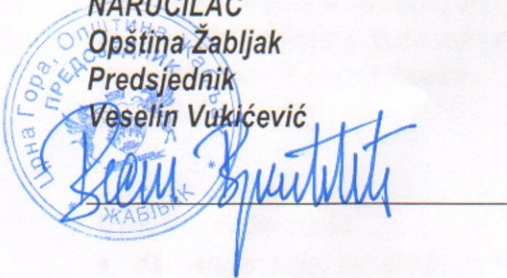 NARUČILAC
Opština Žabljak
Predsjednik
Veselin Vukićević
Црна Гора, Општина Жабљак
ПРЕДСЈЕДНИК
ЖАБЉАК